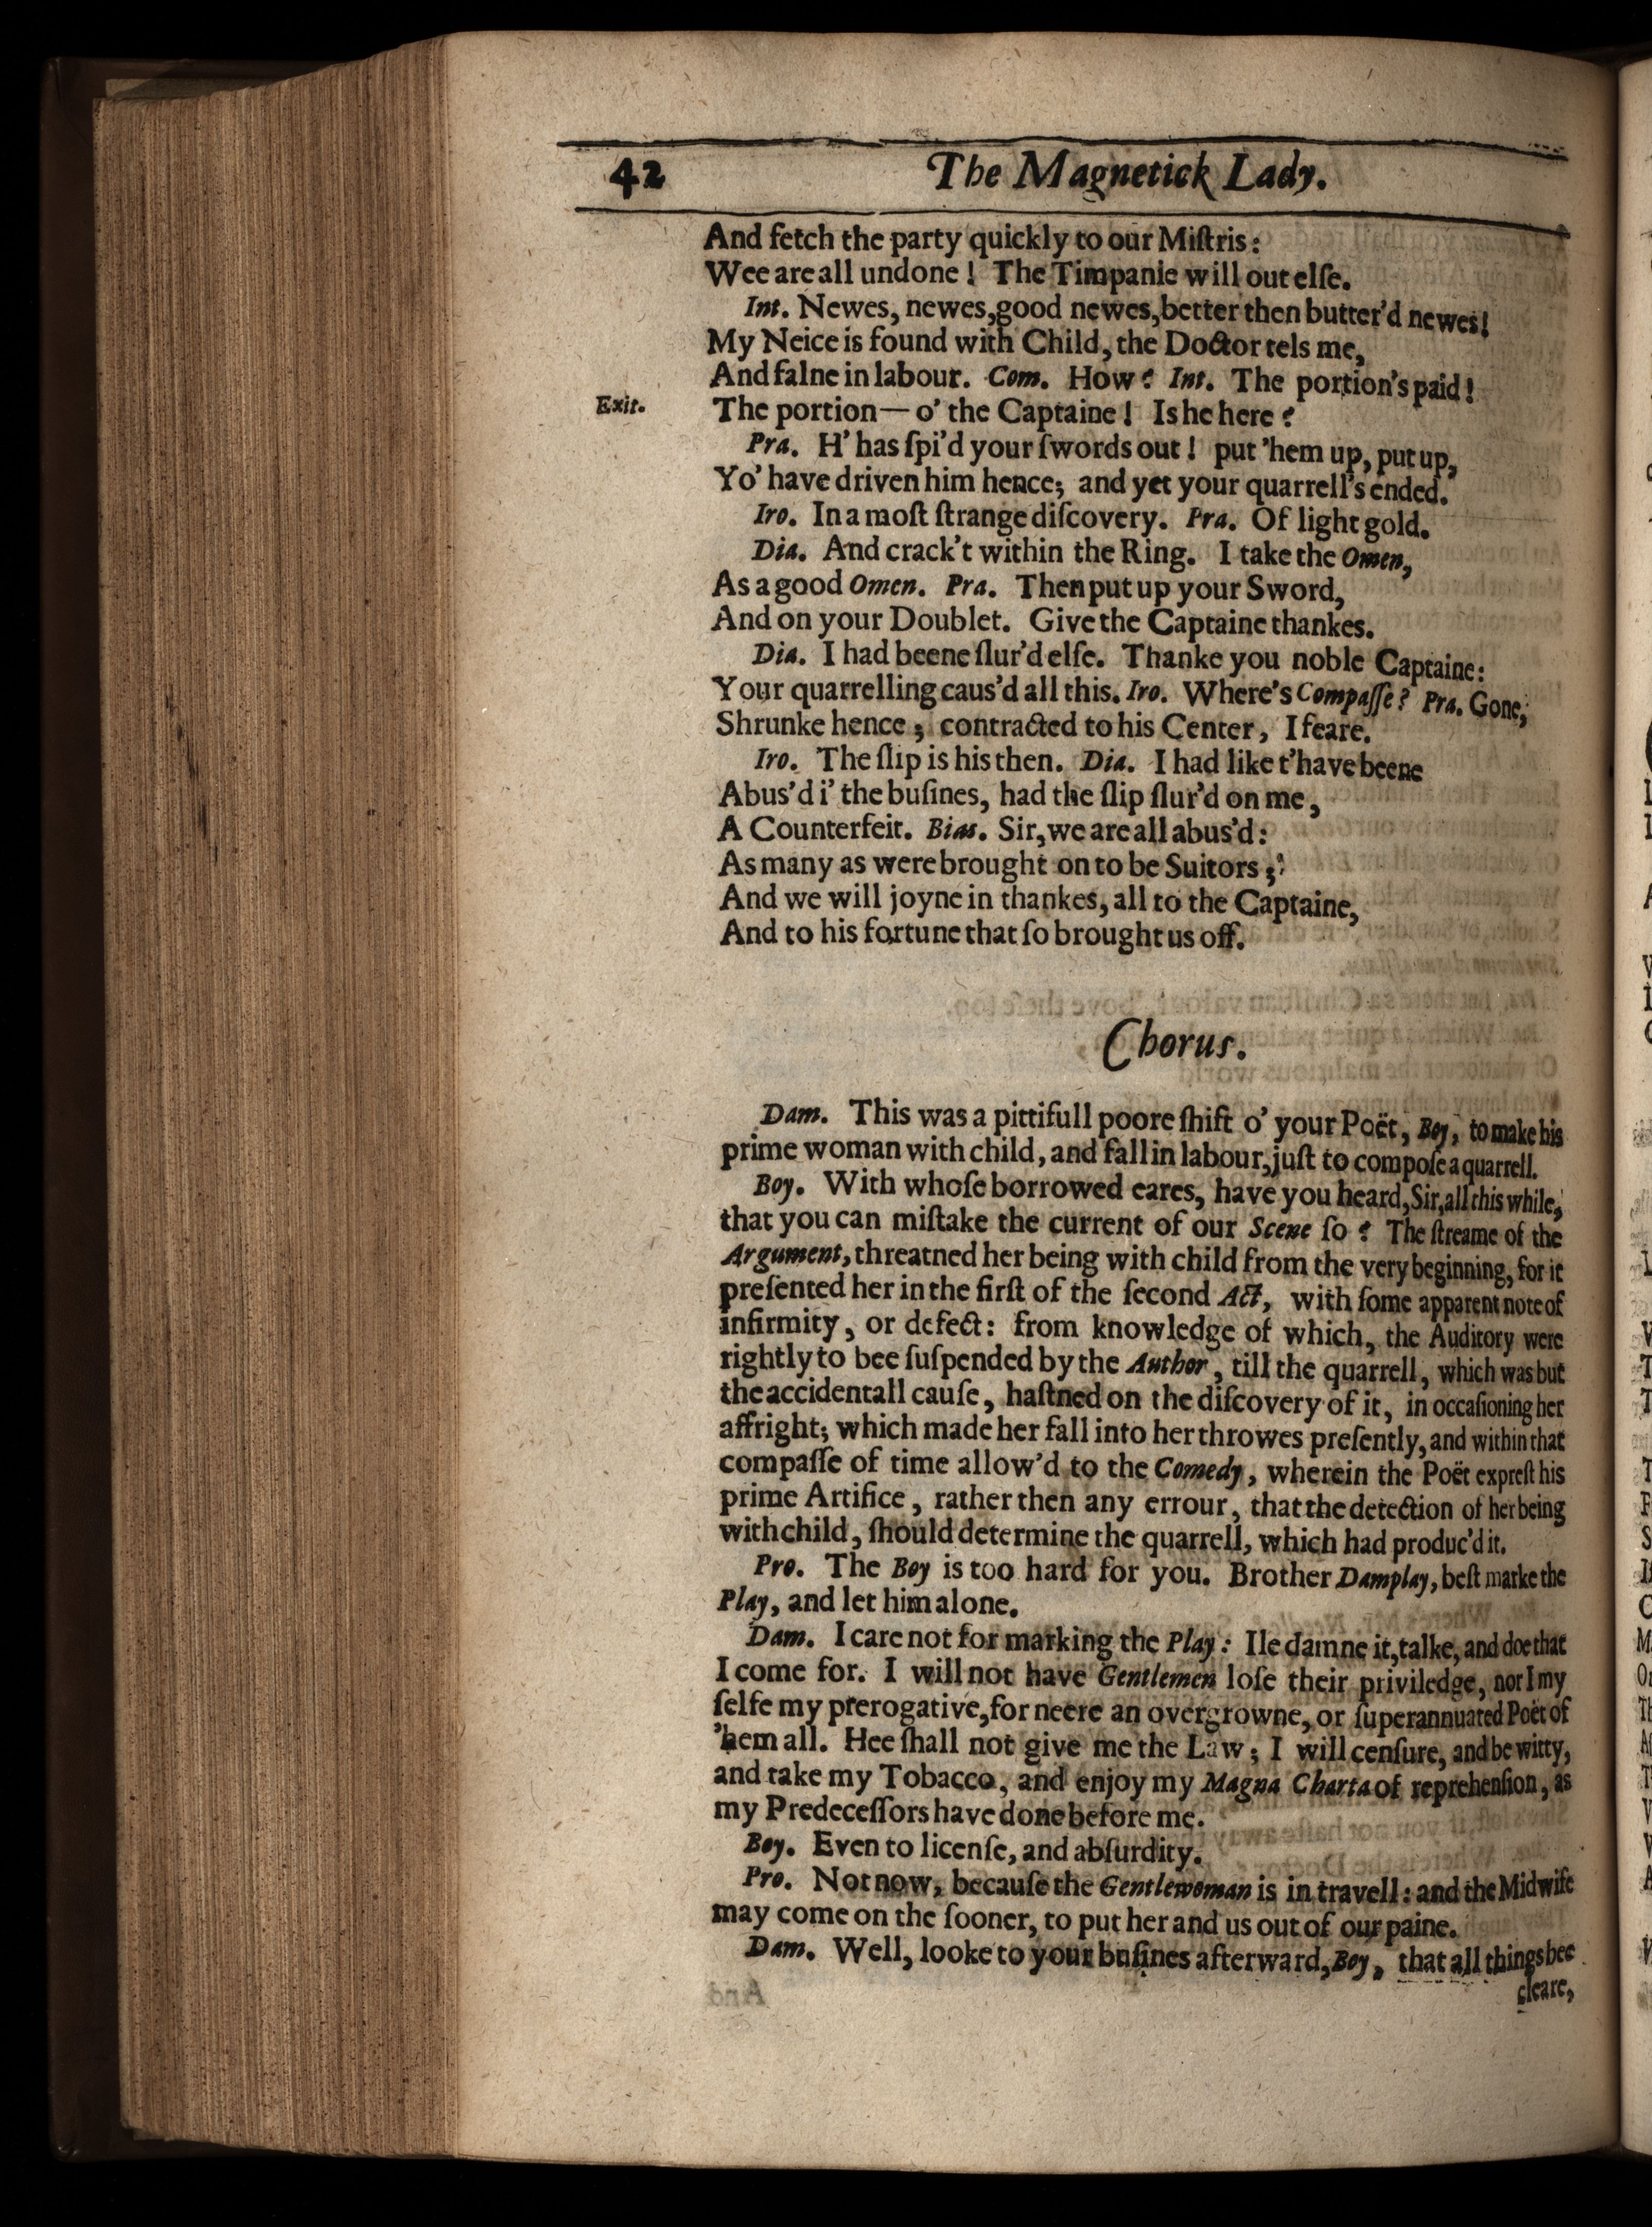 42 The Magnetick Lady.
And fetch the party quickly to our Miſtris:
Wee are all undone! The Timpanie will out elſe.
Int. Newes, newes, good newes, better then butter'd newes!
My Neice is found with Child, the Doctor tels me,
And falne in labour. Com. How? Int. The portion's paid!
Exit. The portion— o' the Captaine! Is he here?
Pra. H' has ſpi'd your ſwords out! put 'hem up, put up,
Yo' have driven him hence; and yet your quarrell's ended.
Iro. In a moſt ſtrange diſcovery. Pra. Of light gold.
Dia. And crack't within the Ring. I take the Omen,
As a good Omen. Pra. Then put up your Sword,
And on your Doublet. Give the Captaine thankes.
Dia. I had beene ſlur'd elſe. Thanke you noble Captaine:
Your quarrelling caus'd all this. Iro. Where's Compaſſe? Pra. Gone,
Shrunke hence; contracted to his Center, I feare.
Iro. The ſlip is his then. Dia. I had like t'have beene
Abus'd i' the buſines, had the ſlip ſlur'd on me,
A Counterfeit. Bias. Sir, we are all abus'd:
As many as were brought on to be Suitors;
And we will joyne in thankes, all to the Captaine,
And to his fortune that ſo brought us off.
Chorus.
Dam. This was a pittifull poore ſhift o' your Poët, Boy, to make his
prime woman with child, and fall in labour, juſt to compoſe a quarrell.
Boy. With whoſe borrowed eares, have you heard, Sir, all this while,
that you can miſtake the current of our Scene ſo? The ſtreame of the
Argument, threatned her being with child from the very beginning, for it
preſented her in the firſt of the ſecond Act, with ſome apparent note of
infirmity, or defect: from knowledge of which, the Auditory were
rightly to bee ſuſpended by the Author, till the quarrell, which was but
the accidentall cauſe, haſtned on the diſcovery of it, in occaſioning her
affright; which made her fall into her throwes preſently, and within that
compaſſe of time allow'd to the Comedy, wherein the Poët expreſt his
prime Artifice, rather then any errour, that the detection of her being
with child, ſhould determine the quarrell, which had produc'd it.
Pro. The Boy is too hard for you. Brother Damplay, beſt marke the
Play, and let him alone.
Dam. I care not for marking the Play: Ile damne it, talke, and doe that
I come for. I will not have Gentlemen loſe their priviledge, nor I my
ſelfe my prerogative, for neere an overgrowne, or ſuperannuated Poët of
'hem all. Hee ſhall not give me the Law; I will cenſure, and be witty,
and take my Tobacco, and enjoy my Magna Charta of reprehenſion, as
my Predeceſſors have done before me.
Boy. Even to licenſe, and abſurdity.
Pro. Not now, becauſe the Gentlewoman is in travell: and the Midwife
may come on the ſooner, to put her and us out of our paine.
Dam. Well, looke to your buſines afterward, Boy, that all things bee
cleare,